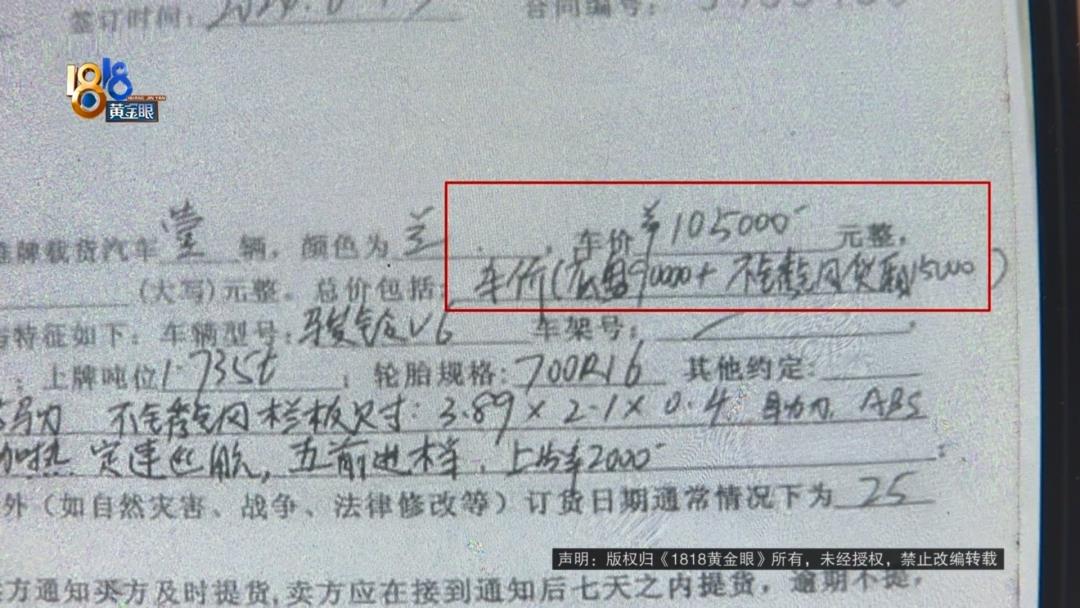 签订时间:
合同编号:
1818
黄金眼
牌载货汽车壹辆,颜色为兰,车价¥105000元整,
(大写)元整。总价包括:车价(底盘90000+不锈钢仓货厢15000)
特征如下:车辆型号:骏铃V6 车架号:
;上牌吨位1.735t;轮胎规格:700R16 其他约定:
马力 不锈钢仓栏板尺寸:3.89×2.1×0.4 助力刀, ABS
加热 定速巡航,五前进档,上汽车2000
外(如自然灾害、战争、法律修改等)订货日期通常情况下为25
方通知买方及时提货,卖方应在接到通知后七天之内提货,逾期不提,
声明:版权归《1818黄金眼》所有,未经授权,禁止改编转载